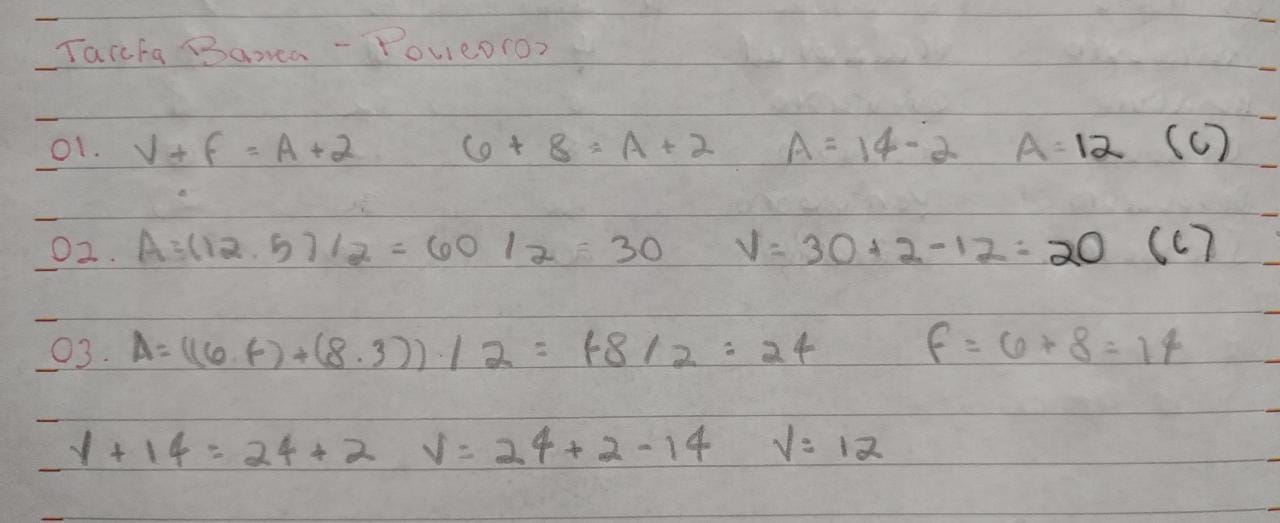 Tarefa Basica - Poliedros
01. V + F = A + 2 6 + 8 = A + 2 A = 14 - 2 A = 12 (C)
02. A = (12 . 5) / 2 = 60 / 2 = 30 V = 30 + 2 - 12 = 20 (C)
03. A = ((6 . 4) + (8 . 3)) / 2 = 48 / 2 = 24 F = 6 + 8 = 14
V + 14 = 24 + 2 V = 24 + 2 - 14 V = 12